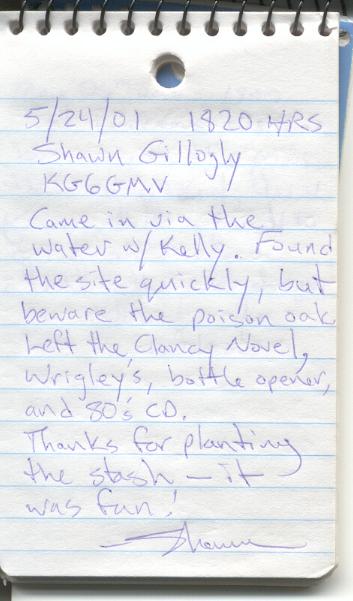 5/24/01 1820 HRS
Shawn Gillogly
KG6GMV
Came in via the
water w/ Kelly. Found
the site quickly, but
beware the poison oak
Left the Clancy Novel,
Wrigley's, bottle opener,
and 80's CD.
Thanks for planting
the stash - it
was fun!
Shawn